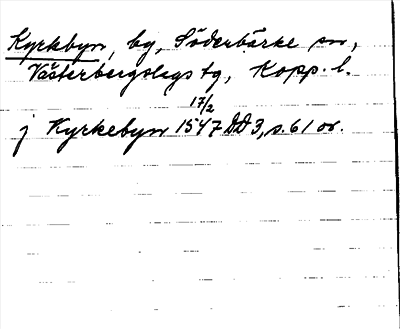 Kyrkbyn, by, Söderbärke sn,
Västerbergslags tg, Kopp. l.
17/2
j Kyrkebyn 1547 DD 3, s. 61 or.